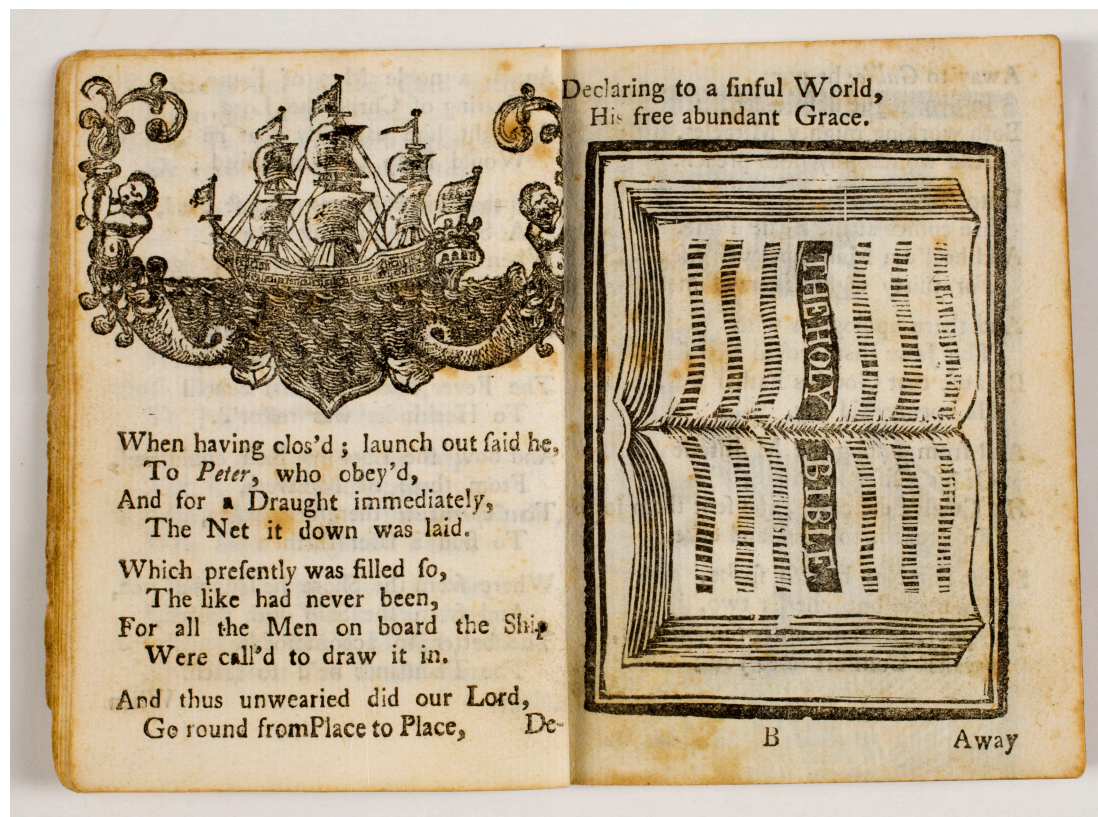 When having clos'd ; launch out ſaid he,
To Peter, who obey'd,
And for a Draught immediately,
The Net it down was laid.
Which preſently was filled ſo,
The like had never been,
For all the Men on board the Ship
Were call'd to draw it in.
And thus unwearied did our Lord,
Go round fromPlace to Place,
De-
Declaring to a ſinful World,
His free abundant Grace.
THE HOLY BIBLE
B
Away